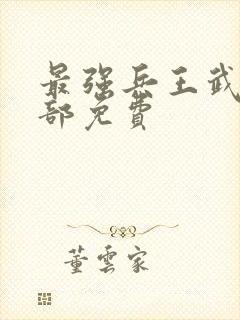 最强兵王武
部免費
董雲家